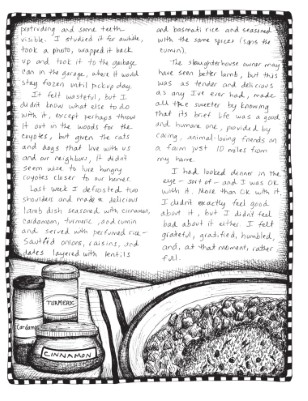 protruding and some teeth
visible. I studied it for awhile,
took a photo, wrapped it back
up and took it to the garbage
can in the garage, where it would
stay frozen until pickup day.
It felt wasteful, but I
didn't know what else to do
with it, except perhaps throw
it out in the woods for the
coyotes, but given the cats
and dogs that live with us
and our neighbors, it didn't
seem wise to lure hungry
coyotes closer to our homes.
Last week I defrosted two
shoulders and made a delicious
lamb dish seasoned with cinnamon,
cardamom, turmeric, and cumin
and served with perfumed rice-
sautéed onions, raisins, and
dates layered with lentils
and basmati rice and seasoned
with the same spices (sans the
cumin).
The slaughterhouse owner may
have seen better lamb, but this
was as tender and delicious
as any I've ever had, made
all the sweeter by knowing
that its brief life was a good
and humane one, provided by
caring, animal-loving friends on
a farm just 10 miles from
my home.
I had looked dinner in the
eye - sort of - and I was OK
with it. More than OK with it.
I didn't exactly feel good
about it, but I didn't feel
bad about it either. I felt
grateful, gratified, humbled,
and, at that moment, rather
full.
TURMERIC
Cardamom
CINNAMON